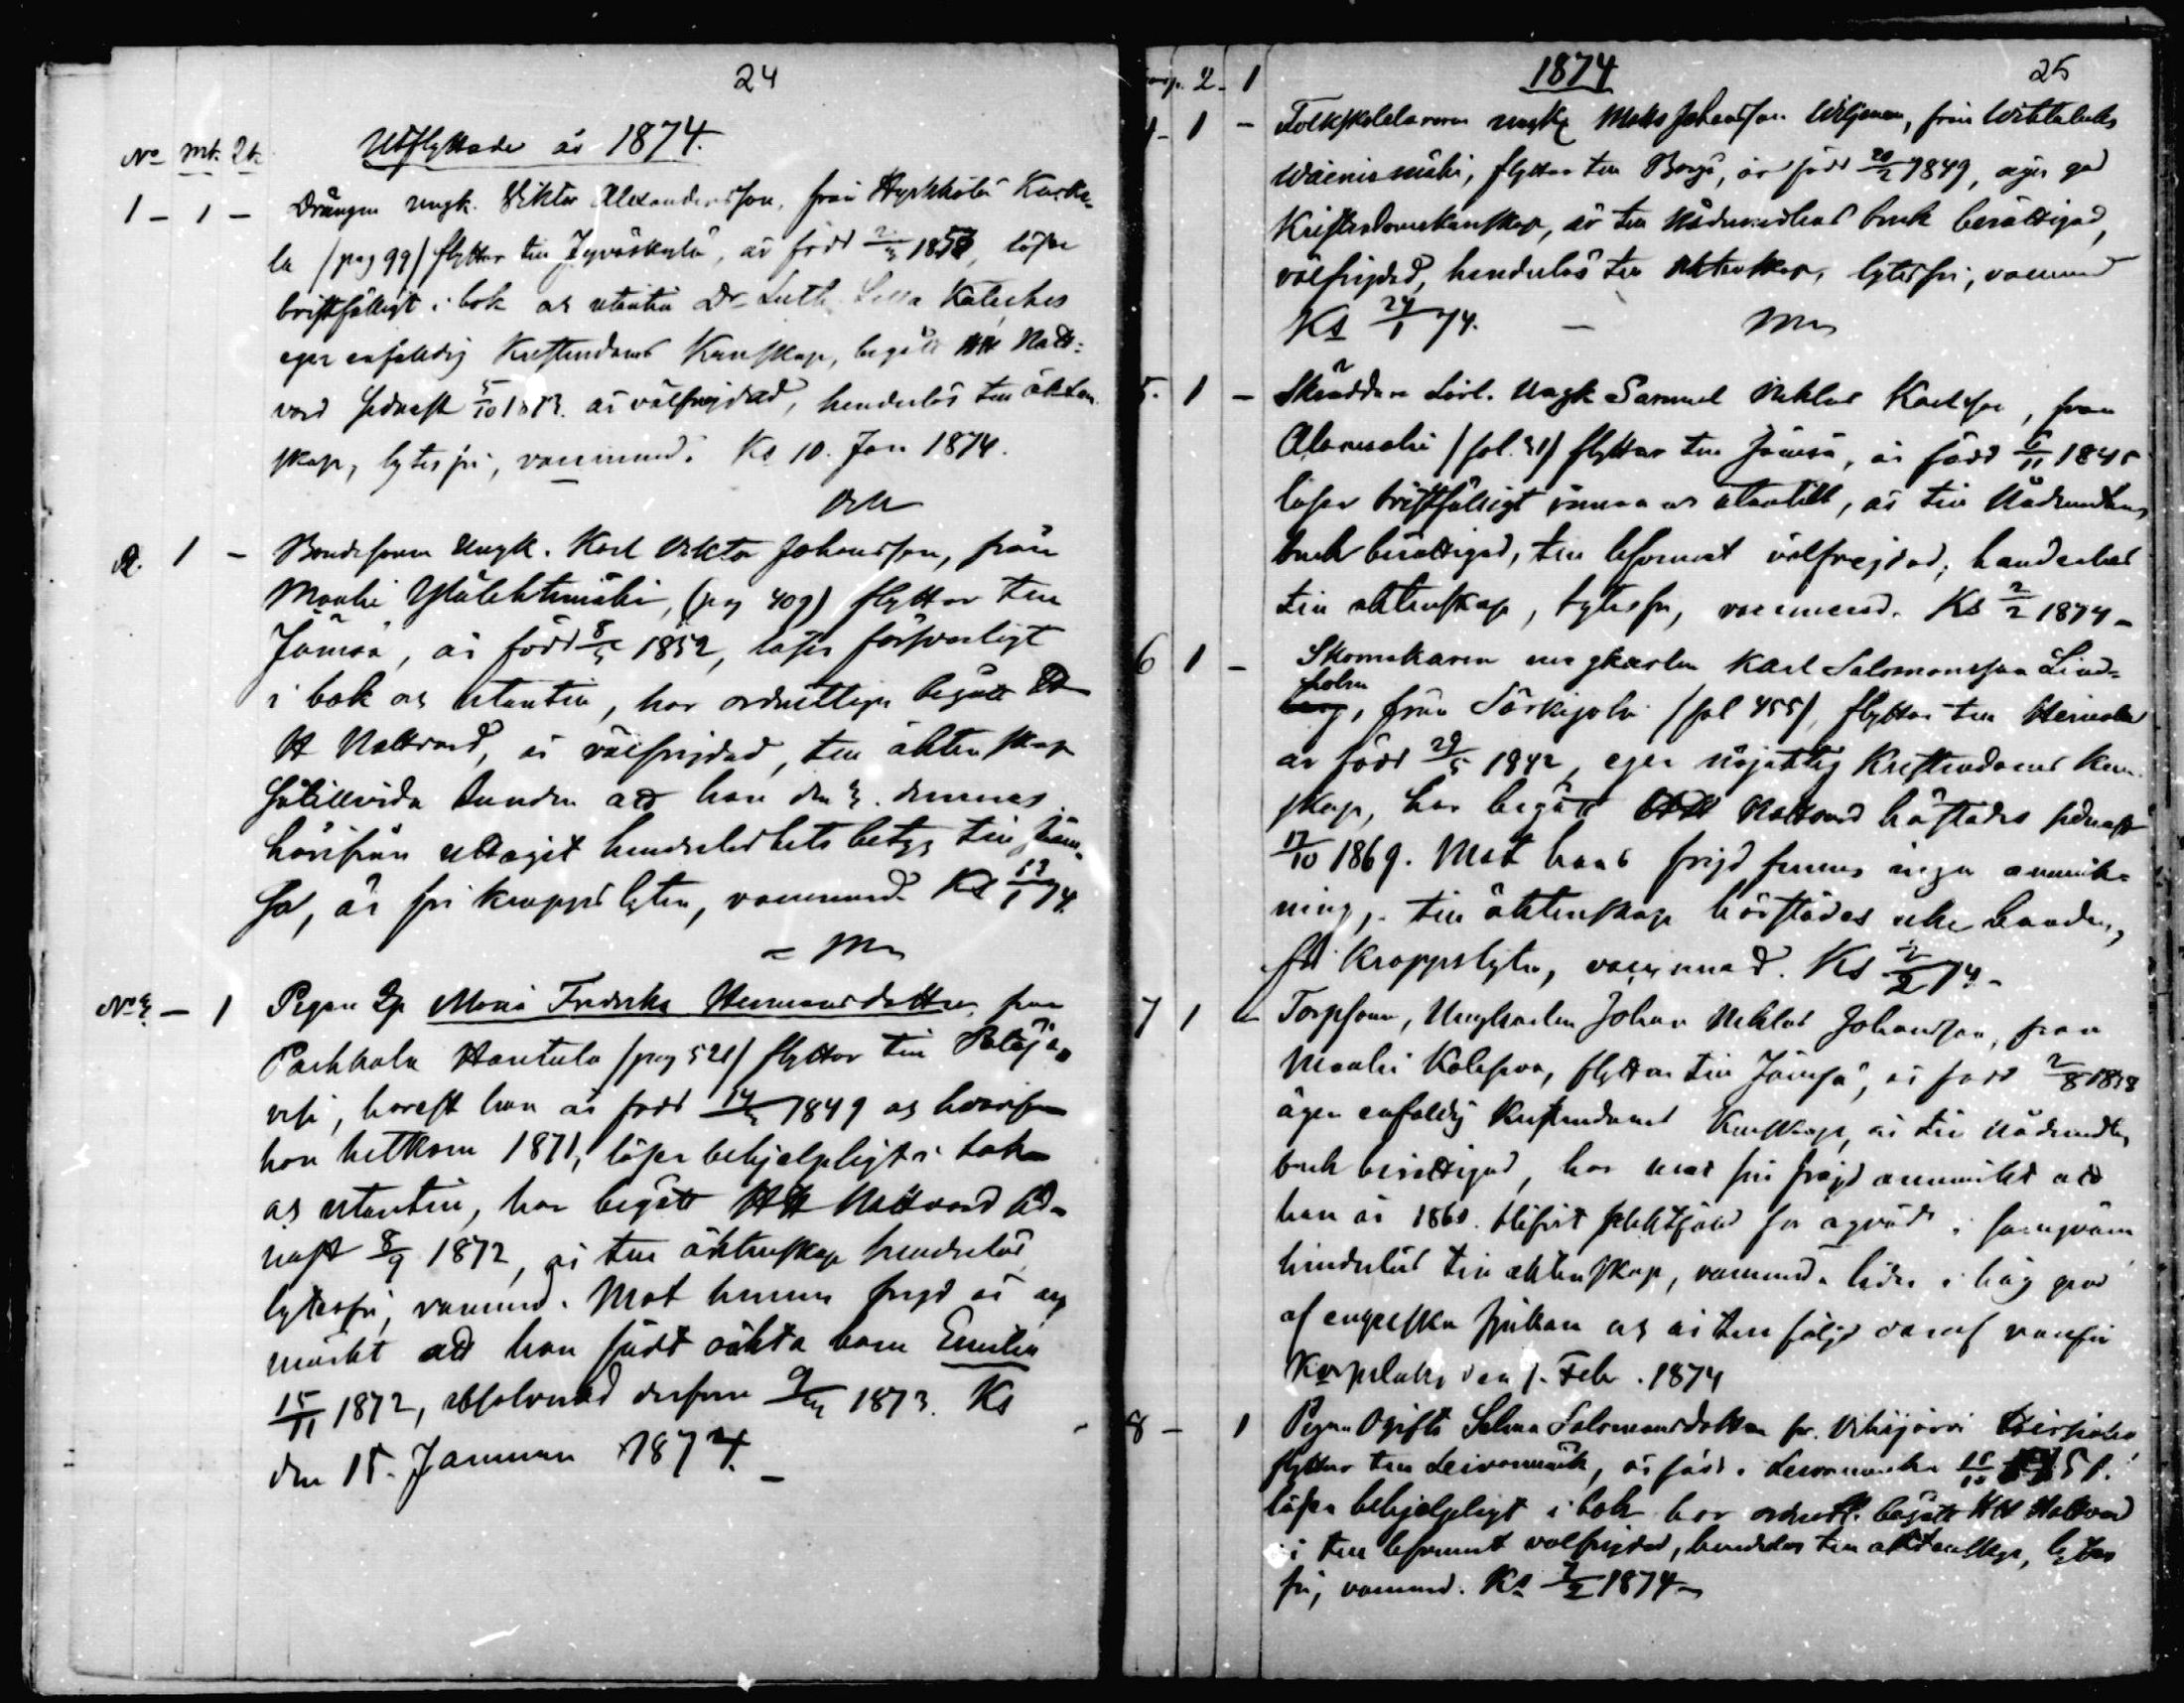 24
No mk. Qk.
Utflyttade år 1874.
1 - 1 - Drängen ungk. Viktor Alexandersson, från Hyrkkölä Karko-
la (pag 99) flyttar till Jyväskylä, är född 1853, läser
bristfälligt i bok och utantill Dr Luth. Lilla Kateches
eger enfaldig Kristendoms Kunskap, begått HH Natt-
vard sednast 5/10 1873. är välfrejdad, hinderlös till äkten
skap, lytesfri, vaccinerad. Ks 10. Jan 1874.
2. 1 - Bondesonen Ungk. Karl Viktor Johansson, från
Maaki Ylälehtimäki, (pag 409) flyttar till
Jämsä, är född 8/5 1852, läser försvarligt
i bok och utantill, har ordentligen begått
H Nattvard, är välfrejdad, till äktenskap
såtillvida bunden att han den 3. dennes
härifrån uttagit hinderlöshets betyg till Jäm-
sä, är fri kroppslyten, vaccinerad. Ks 17/1 74.
No 3 - 1 Pigan Og Maria Fredrika Hermansdotter från
Parkkola Hantula (pag 521) flyttar till Petäjä-
vesi, hvarest hon är född 14/3 1849 och hvarifrån
hon hitkom 1871, läser behjelpligt i bok
och utantill, har begått HH Nattvard sed-
nast 8/9 1872, är till äktenskap hinderlös
lytesfri, vaccinerad. Mot hennes frejd är an-
märkt att hon födt oäkta barn Emilia
15/11 1872, absolverad derföre 9/3 1873. Ks
den 15. Januari 1874.
1874 25
2 - 1
1 - Folkskolelararen ungk Mats Johansson Wiljanen, från
Wäinismäki, flyttar till Borgå, är född 20/2 1849, äger god
Kristendomskunskap, är till Nådemedlens bruk berättigad,
välfrejdad, hinderlös till äktenskap, lytesfri, vaccinerad
Ks 24/1 74.
5. 1 - Skräddare Lärl. Ungk Samuel Niklas Karlsson, från
(fol. 31) flyttar till Jämsä, är född 6/11 1845
läser bristfälligt innan och utantill, är till Nådemedlens
bruk berättigad, till lefvernet välfrejdad, hinderlös
till äktenskap, lytesfri, vaccinerad. Ks 2/2 1874 -
6 1 - Skomakaren ungkarlen Karl Salomonsson Lind-
holm
berg, från Särkijoki (fol 455), flyttar till Heinola
är född 29/5 1842, eger nöjaktig Kristendoms kun-
skap, har begått HH Nattvard härstädes sednast
17/10 1869. Mot hans frejd finnes ingen anmärk-
ning, till äktenskap härstädes icke bunden,
fri Kroppslyten, vaccinerad. Ks 2/2 74 -
7 1 - Torpson, Ungkarlen Johan Niklas Johansson, från
Maaki Kalesva, flyttar till Jämsä, är född 2/8 1838
äger enfaldig Kristendoms Kunskap, är till Nådemedlens
bruk berättigad, har mot sin frejd anmärkt att
han år 1860. blifvit pliktfälld för
hinderlös till äktenskap, vaccinerad. lider i hög grad
af engelska sjukan och är till följd deraf vanför
Korpilaks den 1. Febr. 1874
8 - 1 Pigan Ogifta Selma Salomonsdotter fr. Vihijärvi
flyttar till Leivonmäki, är född i Leivonmäki 51.
läser behjelpligt i bok har ordentl. begått HH Nattvard
är till lefvernet välfrejdad, hinderlös till äktenskap, lytes
fri, vaccinerad. Ks 7/2 1874 -